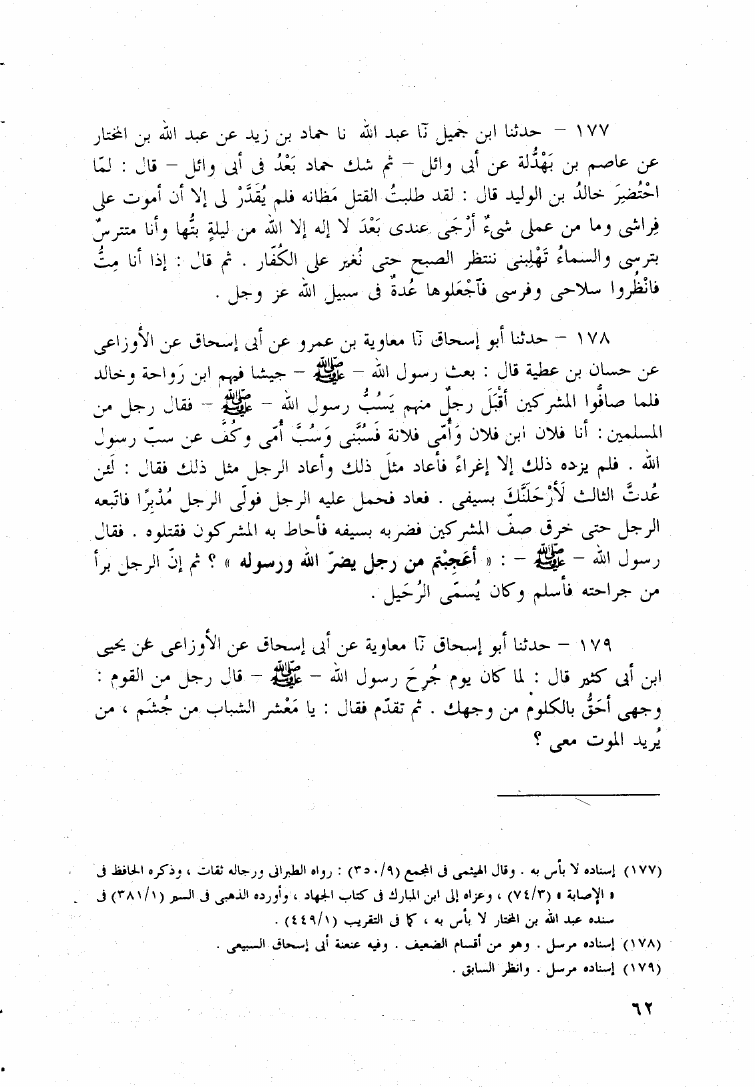 ١٧٧ – حدثنا ابن جميل نَا عبد الله نا حماد بن زيد عن عبد الله بن المختار
عن عاصم بن بَهْدُلة عن أبى وائل – ثم شك حماد بَعْدُ فى أبى وائل – قال : لمّا
احْتُضِرَ خالدُ بن الوليد قال : لقد طلبتُ القتل مَظانه فلم يُقَدَّرْ لى إلا أن أموت على
فِراشى وما من عملى شىءٌ أرْجَى عندى بَعْدَ لا إله إلا الله من ليلةٍ بتُّها وأنا متترسٌ
بترسى والسماءُ تَهْلِبنى ننتظر الصبح حتى نُغير على الكُفّار . ثم قال : إذا أنا مِتُّ
فانْظُروا سلاحى وفرسى فآجْعَلوها عُدةً فى سبيل الله عز وجل .
١٧٨ – حدثنا أبو إسحاق نَا معاوية بن عمرو عن أبى إسحاق عن الأوزاعى
عن حسان بن عطية قال : بعث رسول الله – ﷺ – جيشا فيهم ابن رَواحة وخالد
فلما صافُّوا المشركين أقْبَلَ رجلٌ منهم يَسُبُّ رسول الله – ﷺ – فقال رجل من
المسلمين : أنا فلان ابن فلان وَأُمّى فلانة فَسُبَّنى وَسُبَّ أُمّى وكُفَّ عن سبّ رسول
الله . فلم يزده ذلك إلا إغراءً فأعاد مثلَ ذلك وأعاد الرجل مثل ذلك فقال : لَئن
عُدتَّ الثالث لَأرْحَلَنَّكَ بسيفى . فعاد فحمل عليه الرجل فولّى الرجل مُدْبِرًا فاتَبعه
الرجل حتى خرق صفّ المشركين فضربه بسيفه فأحاط به المشركون فقتلوه . فقال
رسول الله – ﷺ – : « أعَجِبْتم من رجل يضرّ الله ورسوله » ؟ ثم إنّ الرجل برأ
من جراحته فأسلم وكان يُسمّى الرُحَيل .
١٧٩ – حدثنا أبو إسحاق نَا معاوية عن أبى إسحاق عن الأوزاعى عن يحيى
ابن أبى كثير قال : لما كان يوم جُرِحَ رسول الله – ﷺ – قال رجل من القوم :
وجهى أحَقُّ بالكلوم من وجهك . ثم تقدّم فقال : يا مَعْشر الشباب من جُشَم ، من
يُريد الموت معى ؟
(١٧٧) إسناده لا بأس به . وقال الهيثمى فى المجمع (٣٥٠/٩) : رواه الطبرانى ورجاله ثقات ، وذكره الحافظ فى
« الإصابة » (٧٤/٣) ، وعزاه إلى ابن المبارك فى كتاب الجهاد ، وأورده الذهبى فى السير (٣٨١/١) فى
سنده عبد الله بن المختار لا بأس به ، كما فى التقريب (٤٤٩/١) .
(١٧٨) إسناده مرسل . وهو من أقسام الضعيف . وفيه عنعنة أبى إسحاق السبيعى .
(١٧٩) إسناده مرسل . وانظر السابق .
٦٢